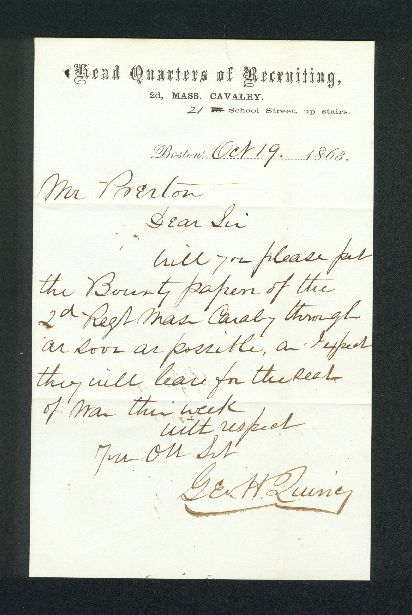 Head Quarters of Recruiting,
2d, MASS. CAVALRY.
21 School Street, up stairs.
Boston, Oct 19. 1863.
Mr Preston
Dear Sir
will you please put
the Bounty papers of the
2d Regt Mass Cavalry through
as soon as possible, as I expect
they will leave for the seat
of War this week
with respect
Your Obt Svt
Geo H Quincy